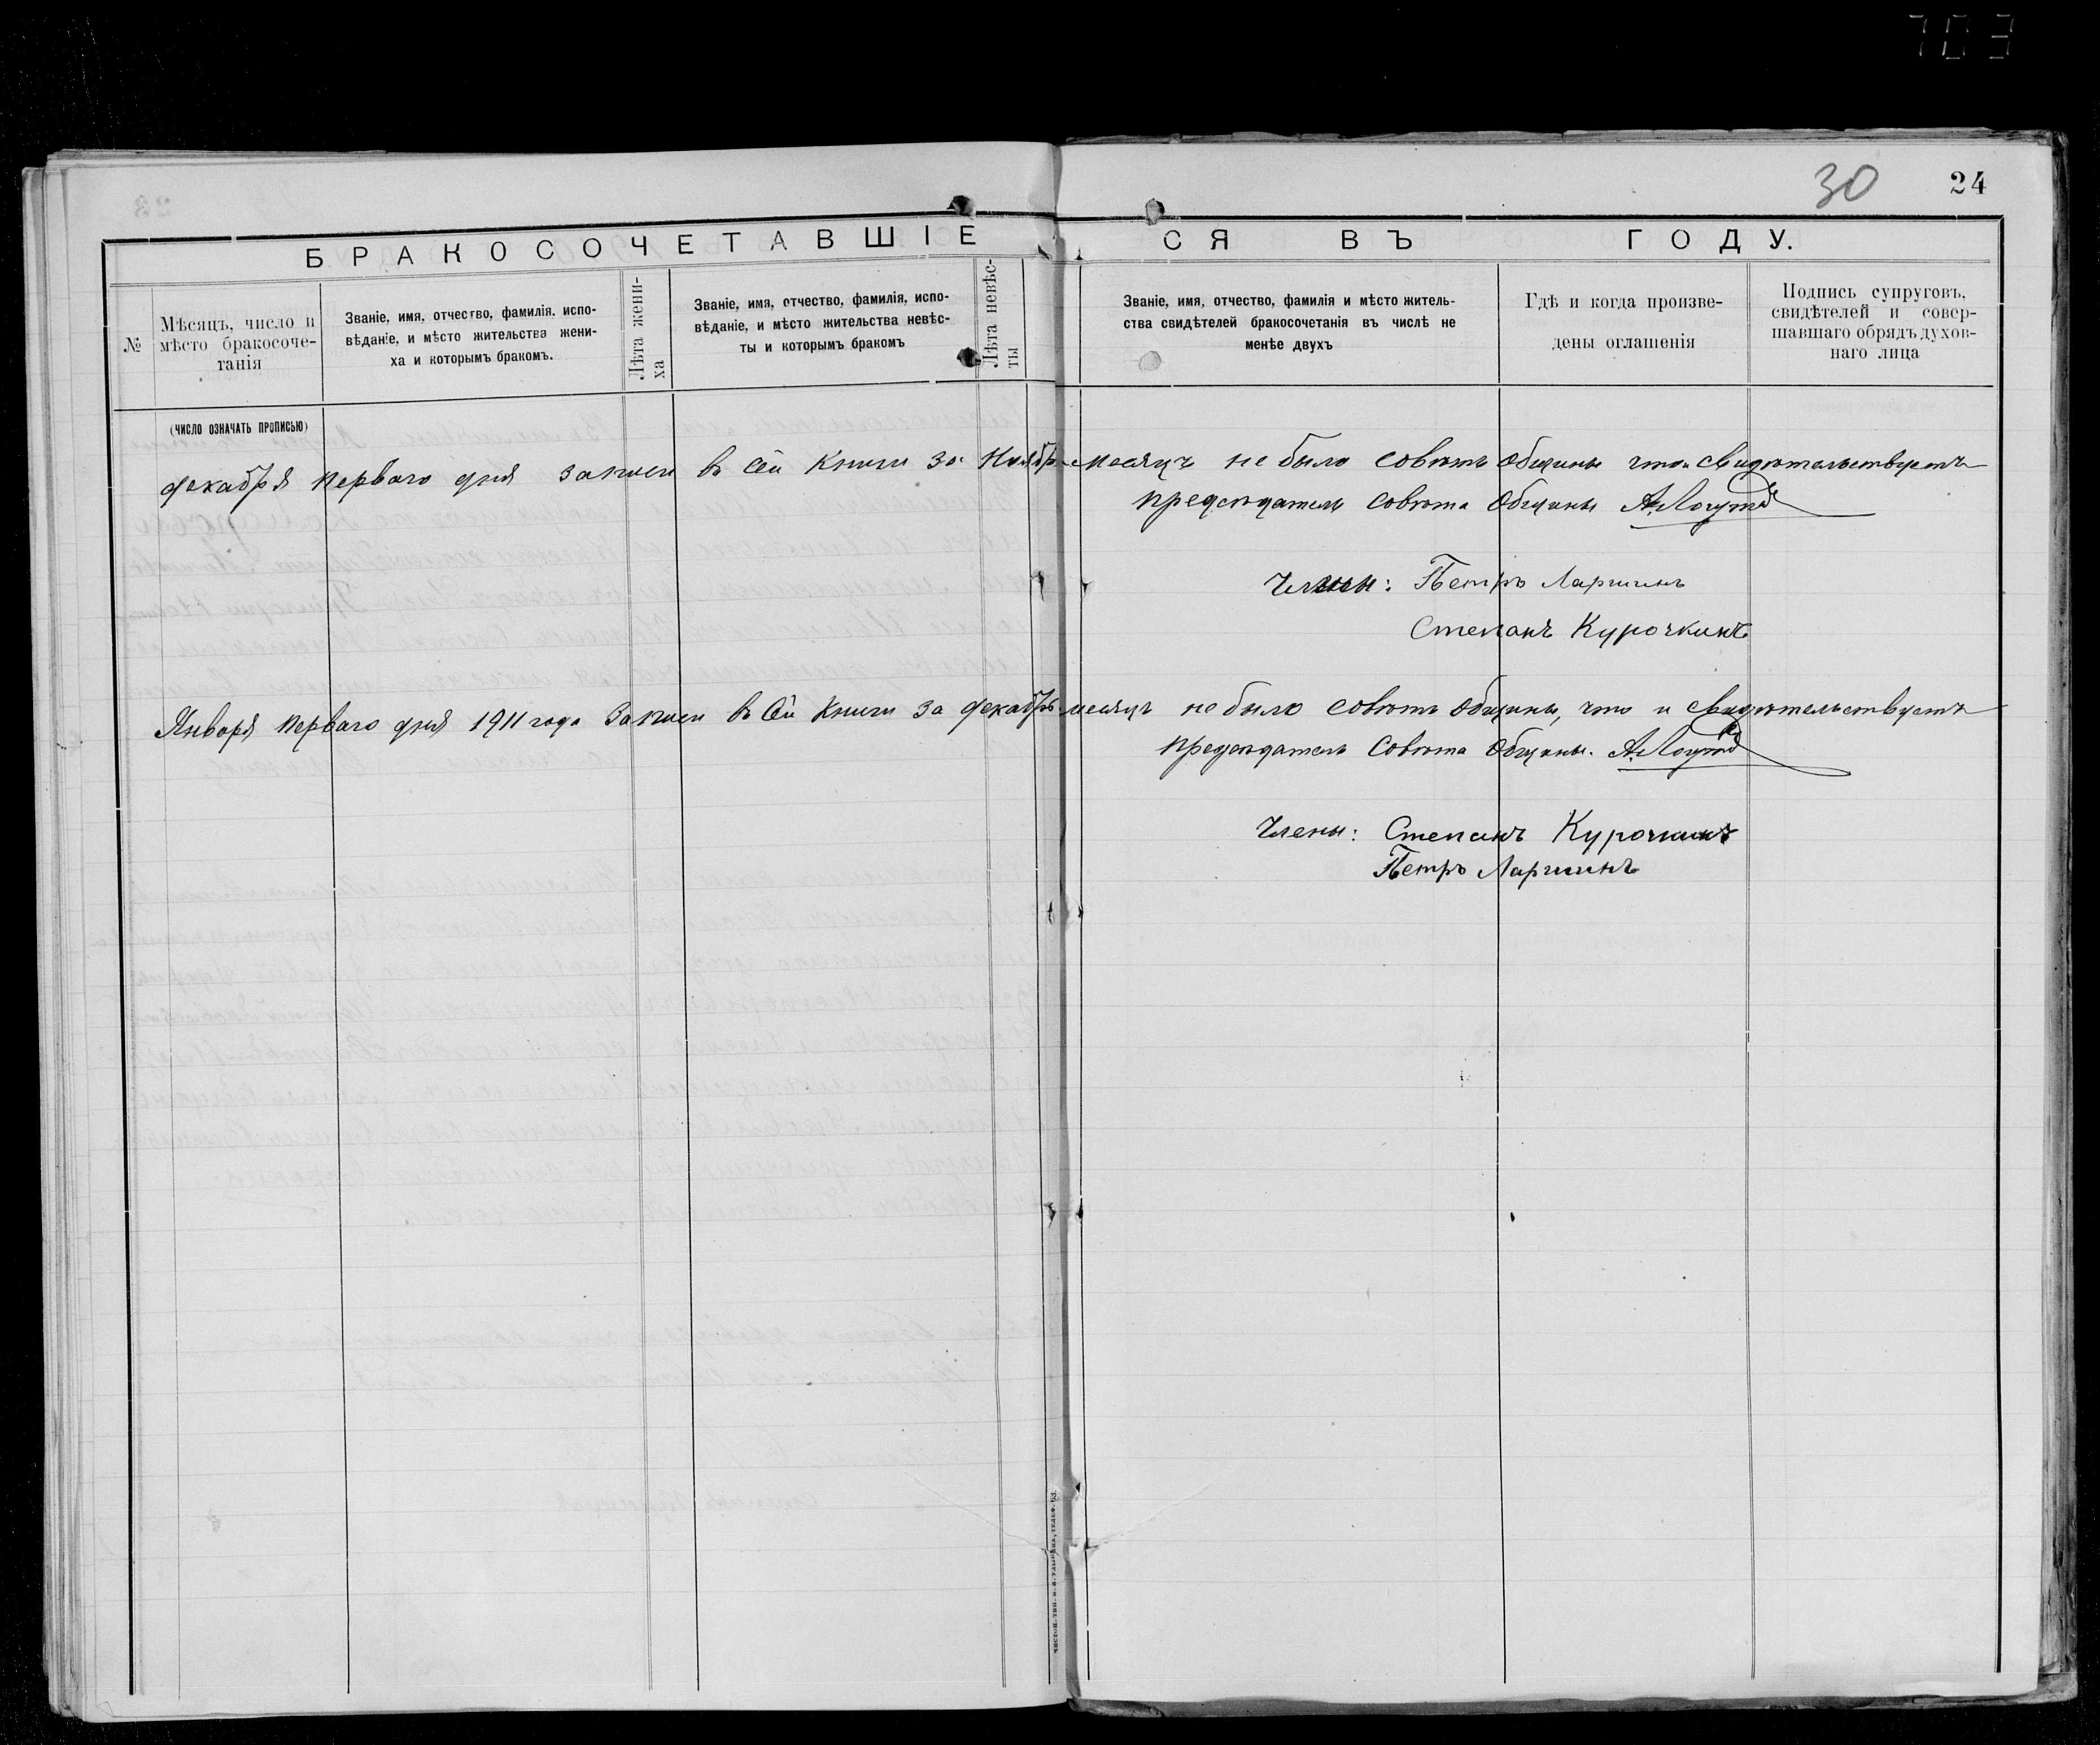 703
30 24
БРАКОСОЧЕТАВШІЕСЯ ВЪ ГОДУ.
№
Мѣсяцъ, число и
мѣсто бракосоче-
танія
Званіе, имя, отчество, фамилія, испо-
вѣданіе, и мѣсто жительства жени-
ха и которымъ бракомъ.
Лѣта жени-
ха
Званіе, имя, отчество, фамилія, испо-
вѣданіе, и мѣсто жительства невѣс-
ты и которымъ бракомъ
Лѣта невѣс-
ты
Званіе, имя, отчество, фамилія и мѣсто житель-
ства свидѣтелей бракосочетанія въ числѣ не
менѣе двухъ
Гдѣ и когда произве-
дены оглашенія
Подпись супруговъ,
свидѣтелей и совер-
шавшаго обрядъ духов-
наго лица
(ЧИСЛО ОЗНАЧАТЬ ПРОПИСЬЮ)
декабря перваго дня записи въ сей Книги за Ноябрь месяцъ не было совѣтъ Общины что и свидѣтельствуетъ
предсѣдатель совѣта Общины
Члены: Петръ Ларшинъ
Степанъ Курочкинъ
Января перваго дня 1911 года Записи въ Сей Книги за декабрь месяцъ не было совѣтъ Общины, что и свидѣтельствуетъ
предсѣдатель Совѣта Общины.
Члены: Степанъ Курочкинъ
Петръ Ларшинъ